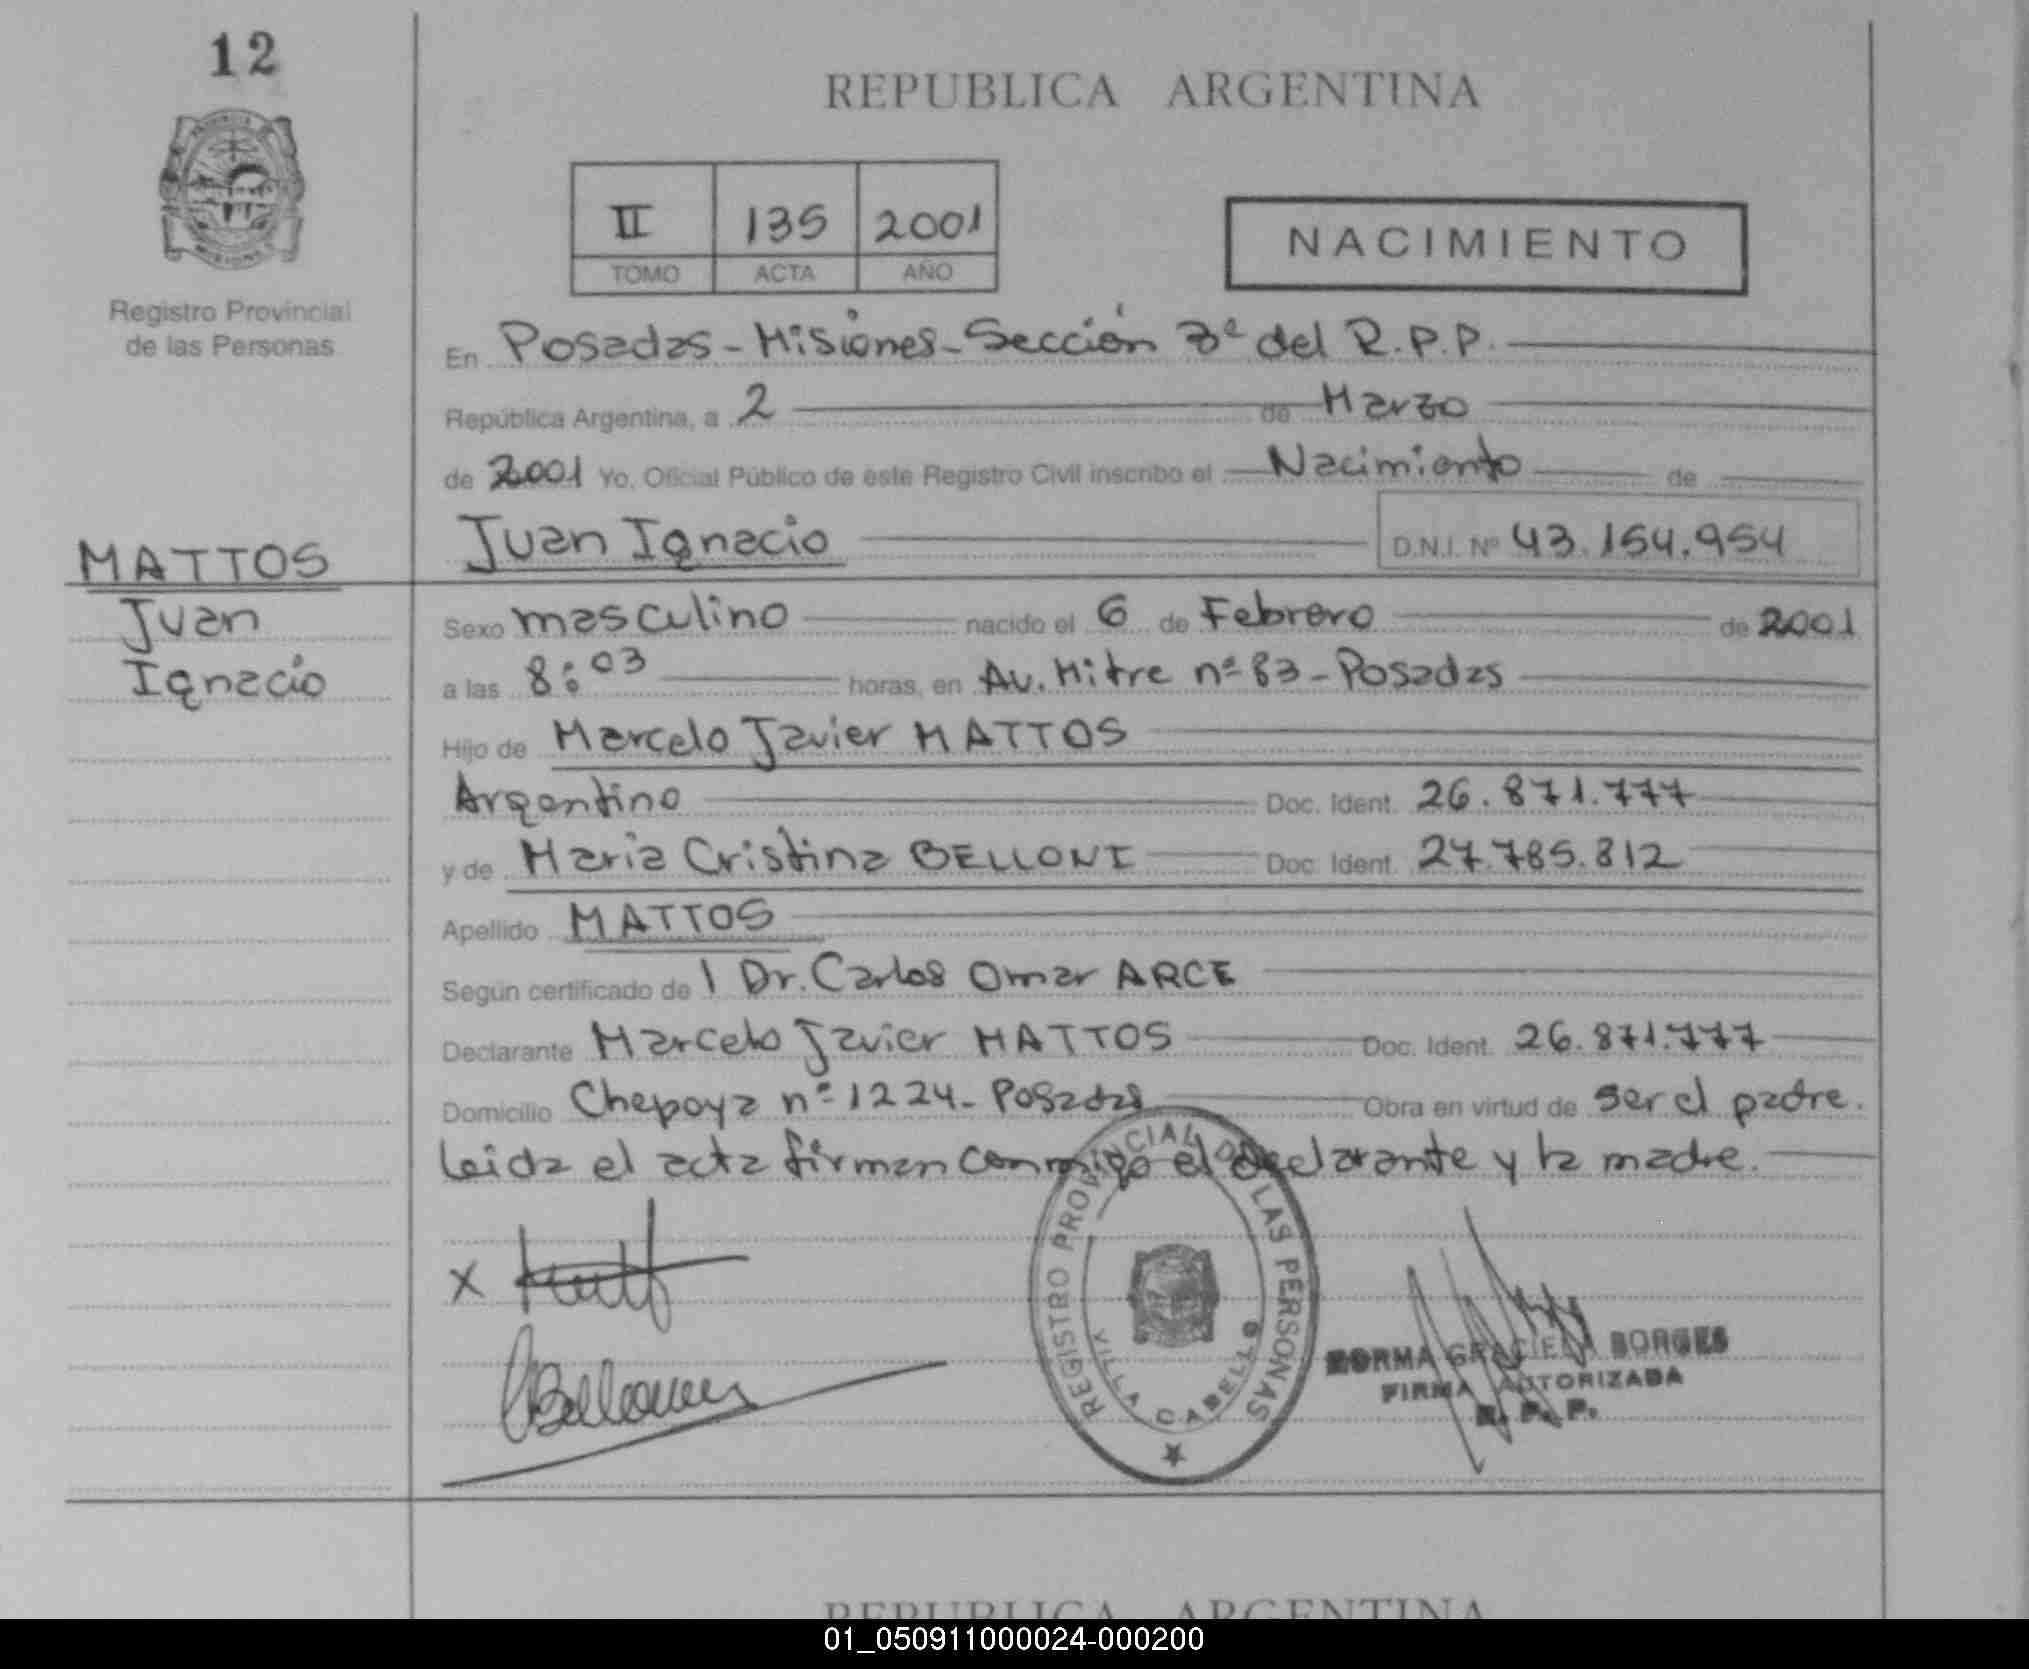 12
REPUBLICA ARGENTINA
II 135 2001
TOMO ACTA AÑO
NACIMIENTO
Registro Provincial
de las Personas
En Posadas - Misiones - Sección 3ª del R.P.P.
República Argentina, a 2 de Marzo
de 2001 Yo, Oficial Público de este Registro Civil inscribo el Nacimiento de
Juan Ignacio D.N.I. Nº 43.154.954
MATTOS
Juan
Ignacio
Sexo masculino nacido el 6 de Febrero de 2001
a las 8:03 horas, en Av. Mitre nº 83 - Posadas
Hijo de Marcelo Javier MATTOS
Argentino Doc. Ident. 26.871.777
y de Maria Cristina BELLONI Doc. Ident. 27.785.812
Apellido MATTOS
Según certificado de l Dr. Carlos Omar ARCE
Declarante Marcelo Javier MATTOS Doc. Ident. 26.871.777
Domicilio Chepoya nº 1224 - Posadas Obra en virtud de ser el padre.
Leida el acta firman conmigo el declarante y la madre.
X
REGISTRO PROVINCIAL DE LAS PERSONAS
VILLA CABELLO
NORMA GRACIELA BORGES
FIRMA AUTORIZADA
R. P. P.
REPUBLICA ARGENTINA
01_050911000024-000200